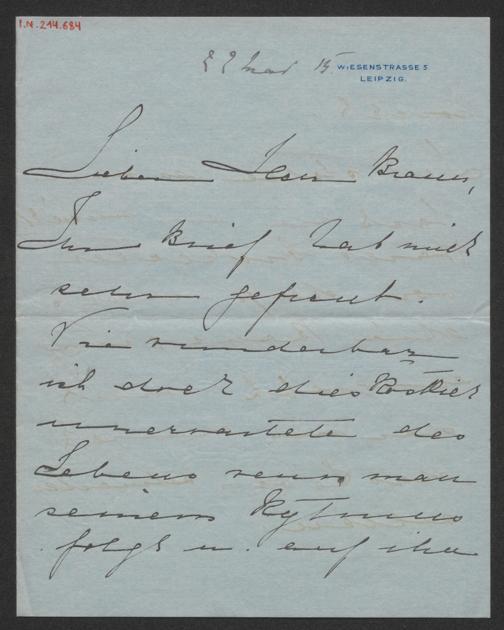 I.N. 244.684
Mai 15
WIESENSTRASSE 5.
LEIPZIG.
Lieber Herr Braun,
Ihr Brief hat mich
sehr gefreut.
Wie wunderbar
ist doch dies
unerwartete des
Lebens wenn man
seinem Rytmus
folgt u. auf ihn